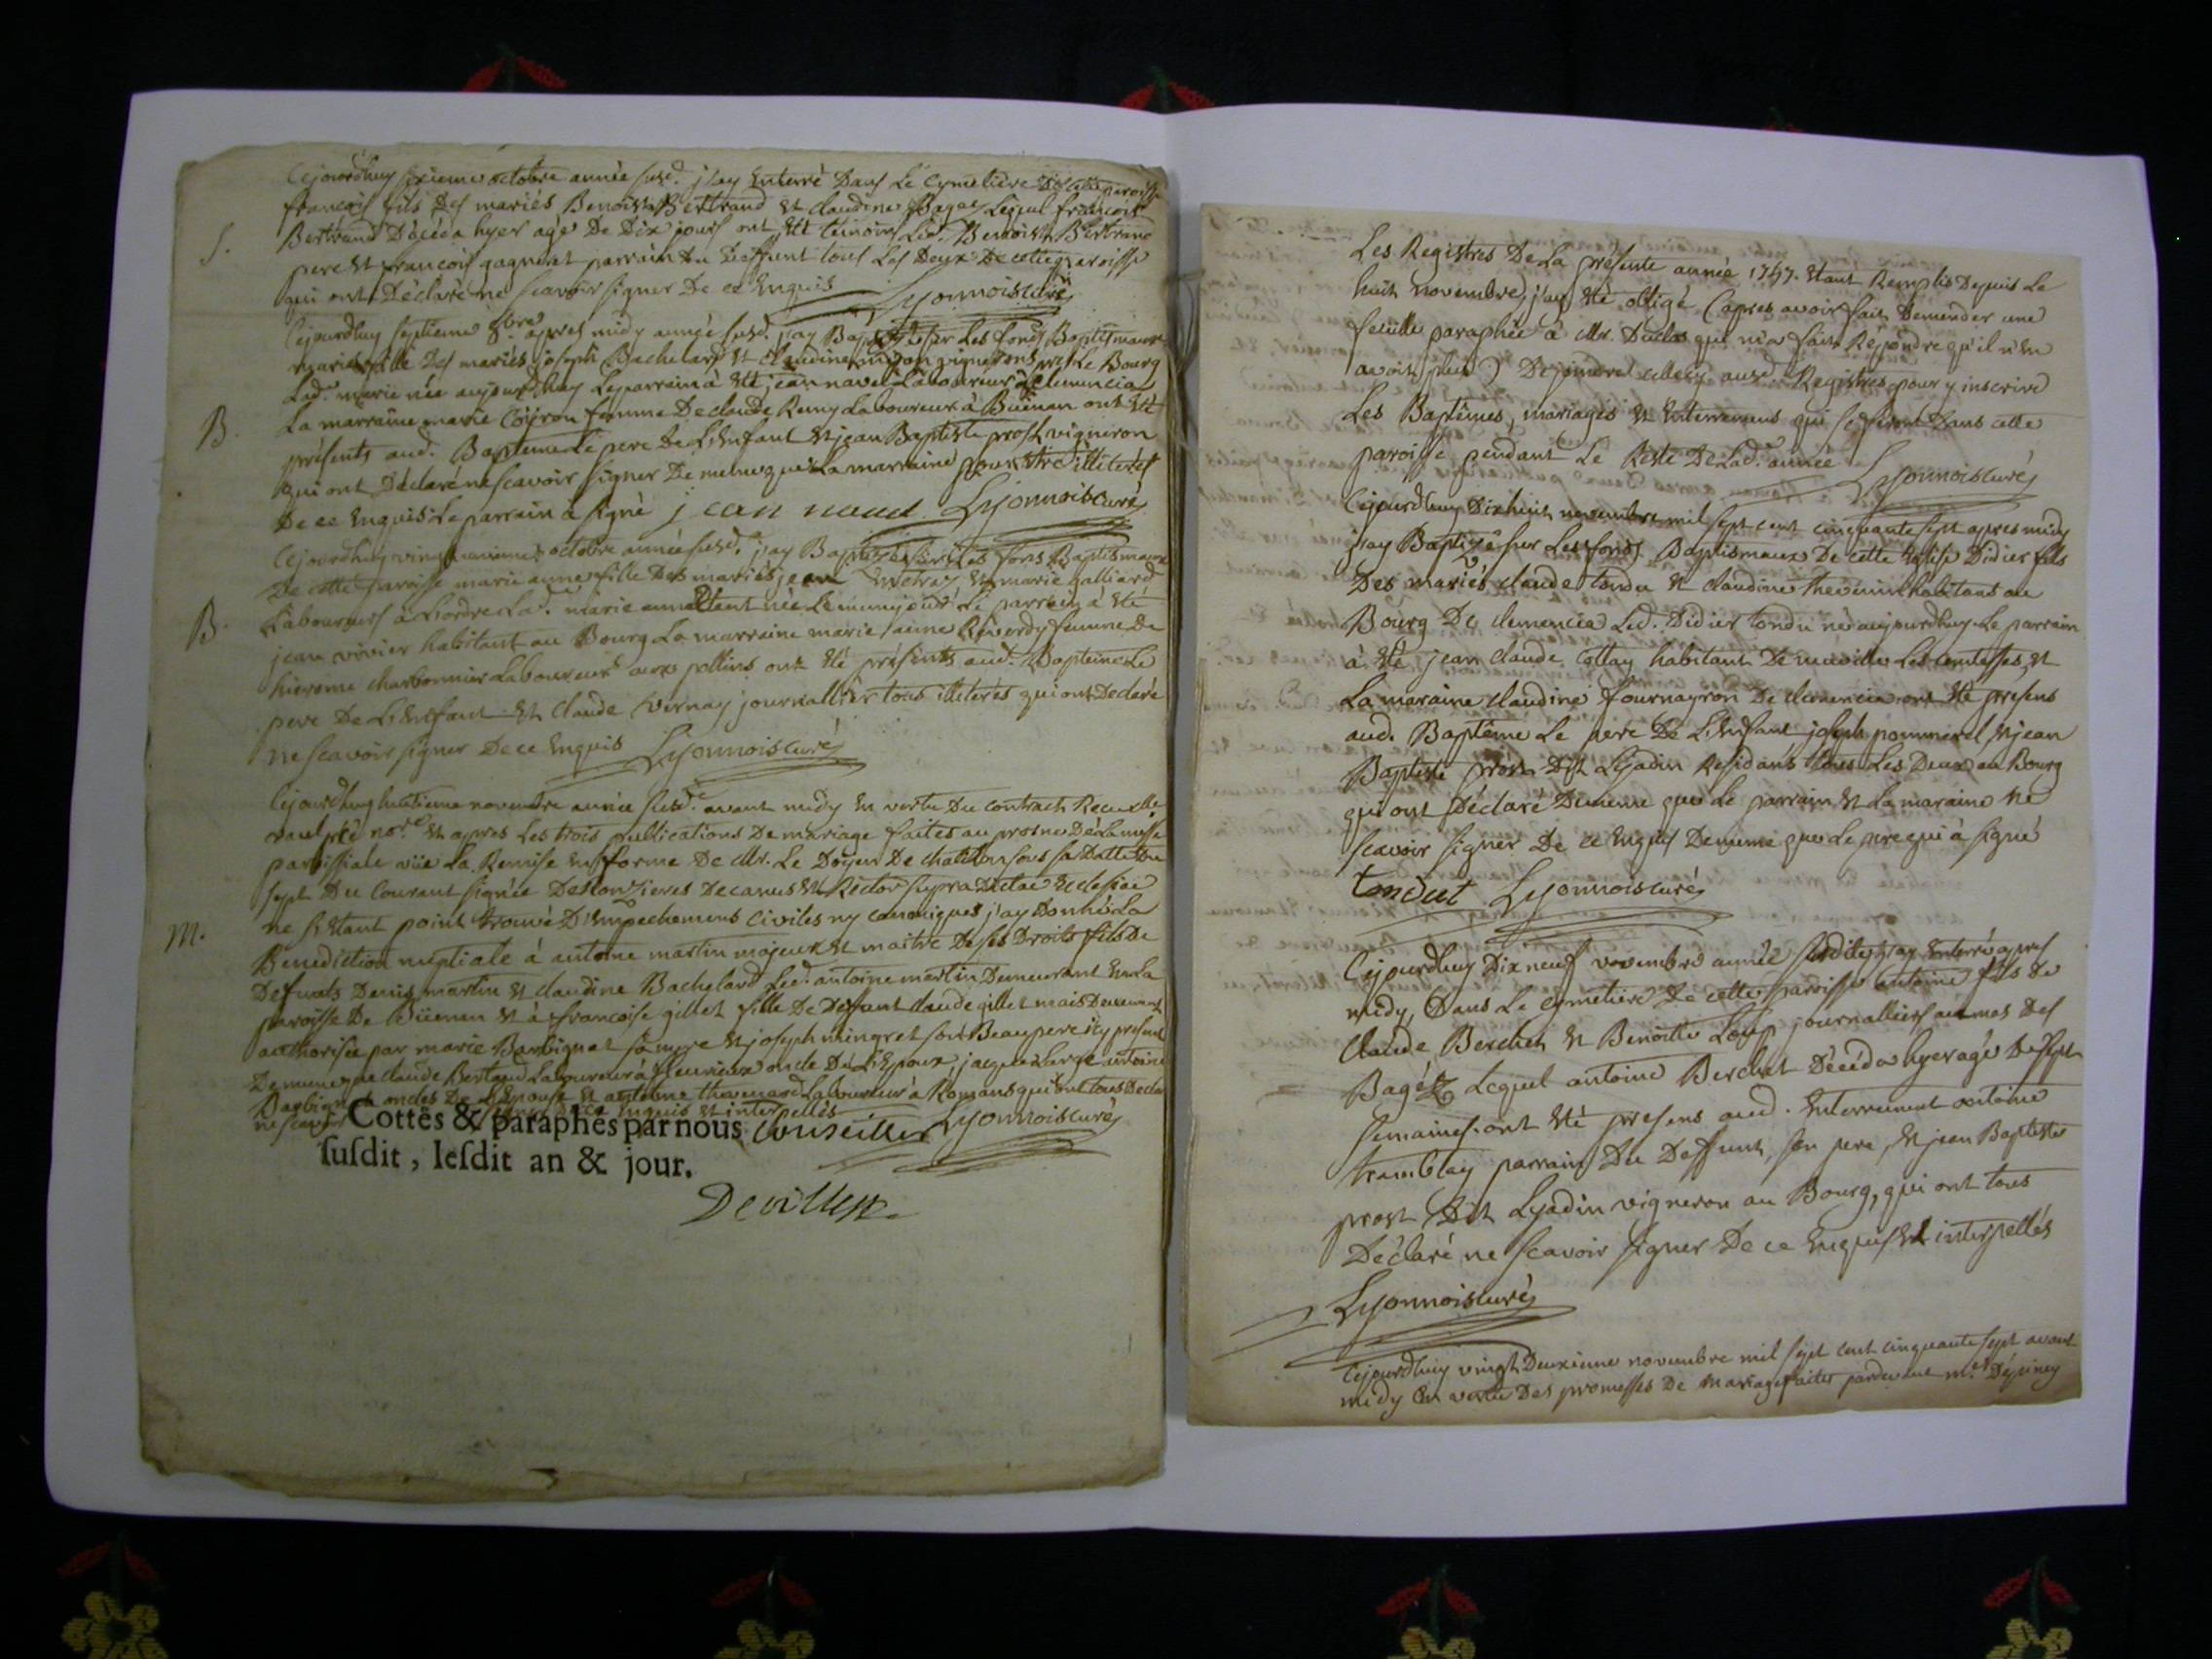 Cejourdhuy sixieme octobre année susd. j'ay Enterré Dans Le Cymetiere De cette paroisse
francois fils Des mariés Benoist Bertrand Et claudine Bagey Lequel francois
S.
Bertrand Décéda hyer agé De Dix jours ont Eté temoins Led. Benoist Bertrand
pere Et francois gagneret parrain Du Deffunt tous Les Deux De cette paroisse
qui ont Déclaré ne scavoir signer De ce Enquis Lyonnois curé
Cejourdhuy septieme 8bre apres midy année susd. j'ay Baptisé sur Les fonds Baptismaux
marie fille Des mariés joseph Bachelard Et claudine vignerons pres Le Bourg
Lad. marie née aujourdhuy Le parrain à Eté jean navel Laboureur à clemencia
B.
La marraine marie Coyron femme De claude Remy Laboureur à Buënan ont Eté
présents aud. Baptême Le pere De L'Enfant Et jean Baptiste prost vigneron
qui ont Déclaré ne scavoir signer De meme que La marraine pour Etre illiterés
De ce Enquis Le parrain à signé jean navel Lyonnois curé
Cejourdhuy vingt octobre année susd. j'ay Baptisé sur Les fons Baptismaux
De cette parroisse marie anne fille Des mariés jean Et marie galliard
Laboureurs à Lad. marie anne Etant née Le même jour Le parrain à Eté
B.
jean vivier habitant au Bourg La marraine marie anne Reverdy femme De
hierôme charbonnier Laboureur aux pollins ont Eté présents aud. Baptême Le
pere De L'Enfant Et claude Vernay journallier tous illiterés qui ont Declaré
ne scavoir signer De ce Enquis Lyonnois curé
Cejourdhuy huitieme novembre année susd. avant midy En vertu Du contract Receu
no.re Et apres Les trois publications De mariage faites au prosne De La messe
paroissiale viie La Remise En forme De Mr. Le Doyen De chatillon sous sa Datte Du
sept Du Courant signée Decanus Et Rector supra Dictae Eclesiae
ne s'Etant point trouvé D'Empechemens Civiles ny canoniques j'ay Donné La
M.
Benediction nuptiale à antoine martin majeur Et maitre De ses Droits fils De
Defunts Denis martin Et claudine Bachelard Led. antoine martin Demeurant En La
paroisse De Büenan Et à francoise gillet fille De Deffunt claude gillet mais Deuement
authorisée par marie Barbignat sa mere Et joseph mingret son Beaupere icy present
De meme que claude Bertaud Laboureur à fleurieux oncle De L'Epoux, jacques Large antoine
Barbignat oncles De L'Epouse Et antoine thevenard Laboureur à Romans qui ont tous Declaré
ne scavoir signer De ce Enquis Et interpellés
Cottés & paraphés par nous Conseiller Lyonnois curé
susdit, lesdit an & jour.
Devillest
Les Registres De La présente année 1757. Etant Remplis Depuis Le
huit novembre, j'ay Eté obligé (apres avoir fait Demender une
feuille paraphée à Mr. Duclos qui m'a fait Réspondre qu'il n'En
avoit plus) De joindre celle cy ausd. Registres pour y inscrire
Les Baptêmes, mariages Et Enterremens qui se feront Dans cette
paroisse pendant Le Reste De Lad. année Lyonnois curé
Cejourdhuy Dixhuit novembre mil sept cent cinquante sept apres midy
j'ay Baptizé sur Les fonds Baptismeaux De cette Eglise Didier fils
Des mariés claude tondu Et claudine thevenin habitans au
Bourg De clemencia Led. Didier tondu né aujourdhuy. Le parrain
à Eté jean claude Cottay habitant De neuville Les comtesses, Et
La maraine claudine fournayron De clemencia ont Eté presens
aud. Baptême Le pere De L'Enfant joseph pommerel Et jean
Baptiste prost Dit Lyadin Residans tous Les Deux au Bourg
qui ont Déclaré De meme que Le parrain Et La maraine ne
scavoir signer De ce Enquis De meme que Le pere qui à signé
tondut Lyonnois curé
Cejourdhuy Dixneuf novembre année susdite j'ay Enterré apres
midy, Dans Le cymetiere De cette paroisse antoine fils De
claude Berchet Et Benoitte Loup journalliers au mas Des
Bagés Lequel antoine Berchet Décéda hyer agé De sept
semaines. ont Eté presens aud. Enterrement antoine
tramblay parrain Du Deffunt, son pere, Et jean Baptiste
prost Dit Lyadin vigneron au Bourg, qui ont tous
Déclaré ne scavoir signer De ce Enquis Et interpellés
Lyonnois curé
Cejourdhuy vingt Deuxieme novembre mil sept cent cinquante sept avant
midy En vertu Des promesses De Mariage faites pardevant me. Dépiney